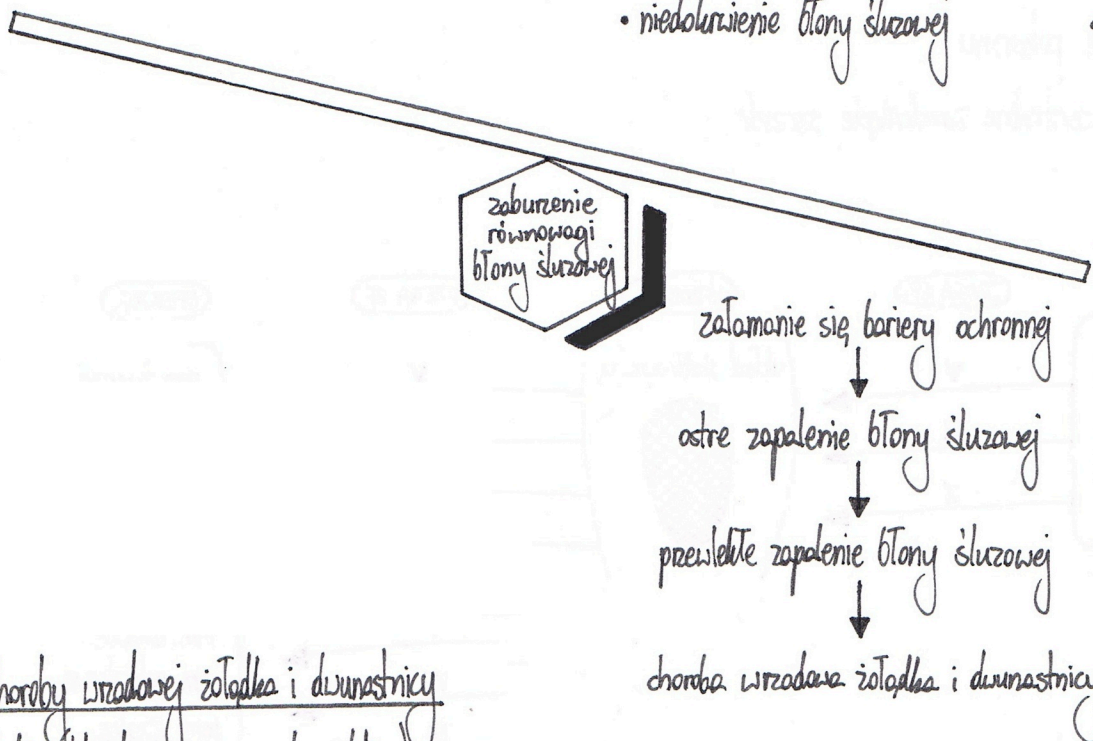 • niedokrwienie błony śluzowej
zaburzenie
równowagi
błony śluzowej
załamanie się bariery ochronnej
ostre zapalenie błony śluzowej
przewlekłe zapalenie błony śluzowej
choroba wrzodowa żołądka i dwunastnicy
horoby wrzodowej żołądka i dwunastnicy